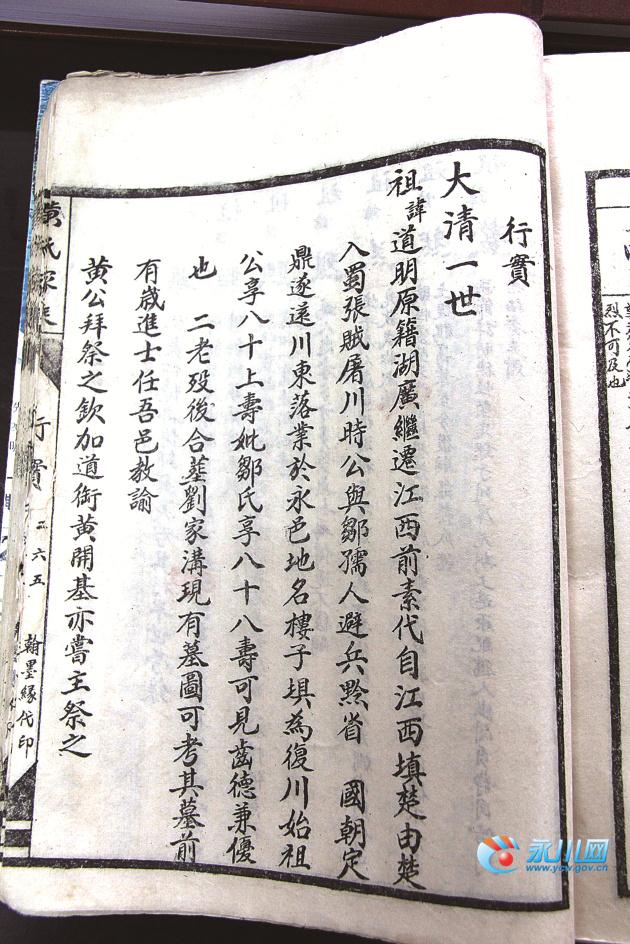 行實
大清一世
祖諱道明原籍湖廣繼遷江西前素代自江西填楚由楚
入蜀張賊屠川時公與鄒孺人避兵黔省 國朝定
鼎遂遠川東落業於永邑地名樓子垻為復川始祖
公享八十上壽妣鄒氏享八十八壽可見齒德兼優
也 二老歿後合塟劉家溝現有墓圖可考其墓前
有歲進士任吾邑教諭
黄公拜祭之欽加道銜黄開基亦嘗主祭之
黄氏家乘
行實
二六五
翰墨緣代印
烈不可及也
永川网
www.ycw.gov.cn